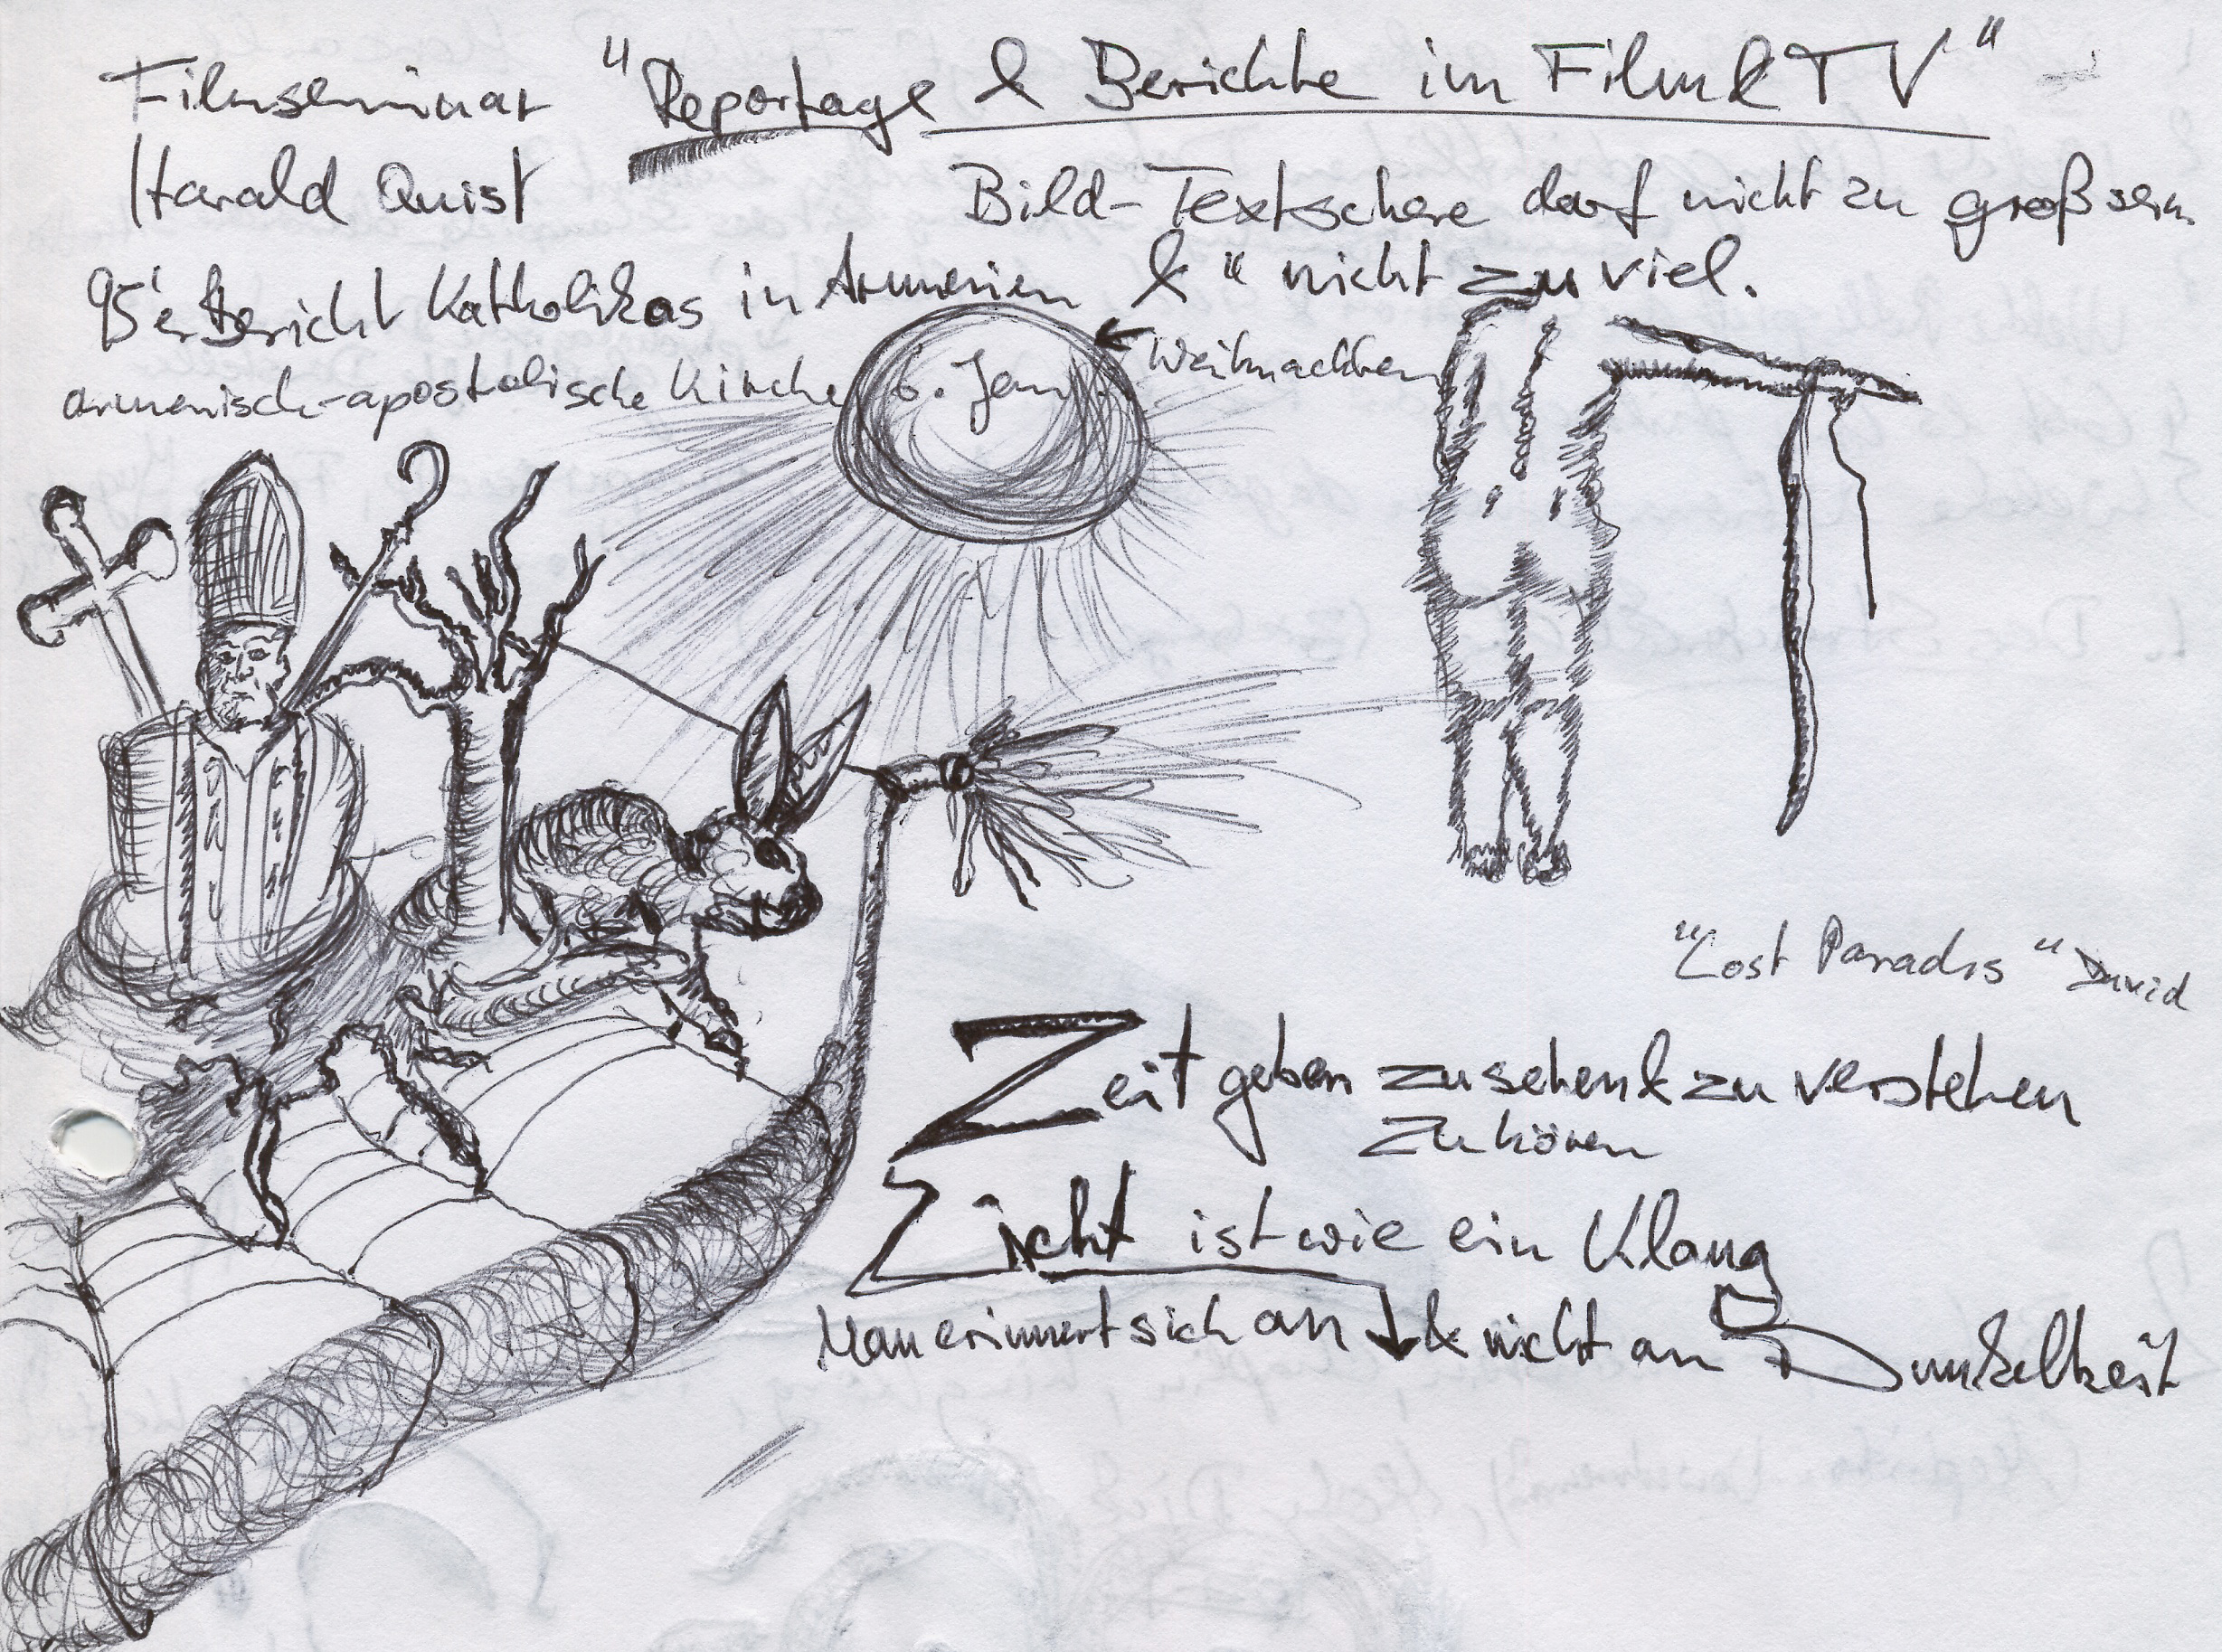 Filmseminar "Reportage & Berichte im Film & TV"
Harald Quist
Bild-Textschere darf nicht zu groß sein
& " nicht zu viel.
95'er Bericht Katholikos in Armenien
armenisch-apostolische Kirche 6. Jan. ← Weihnachten
"Lost Paradis" David
Zeit geben zu sehen & zu verstehen
zu hören
Licht ist wie ein Klang
Man erinnert sich an ↓ & nicht an Dunkelheit